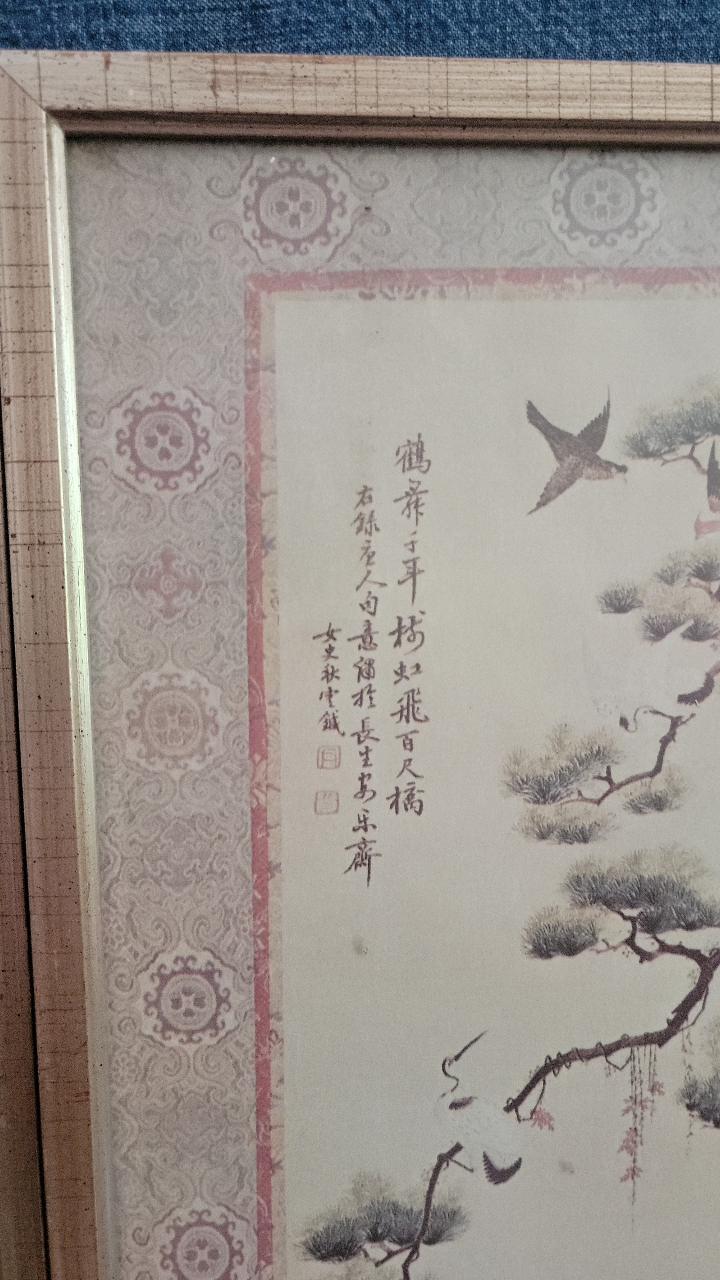 鶴舞千年樹虹飛百尺橋
右錄唐人句意繡於長生安乐齋
女史秋雲鍼